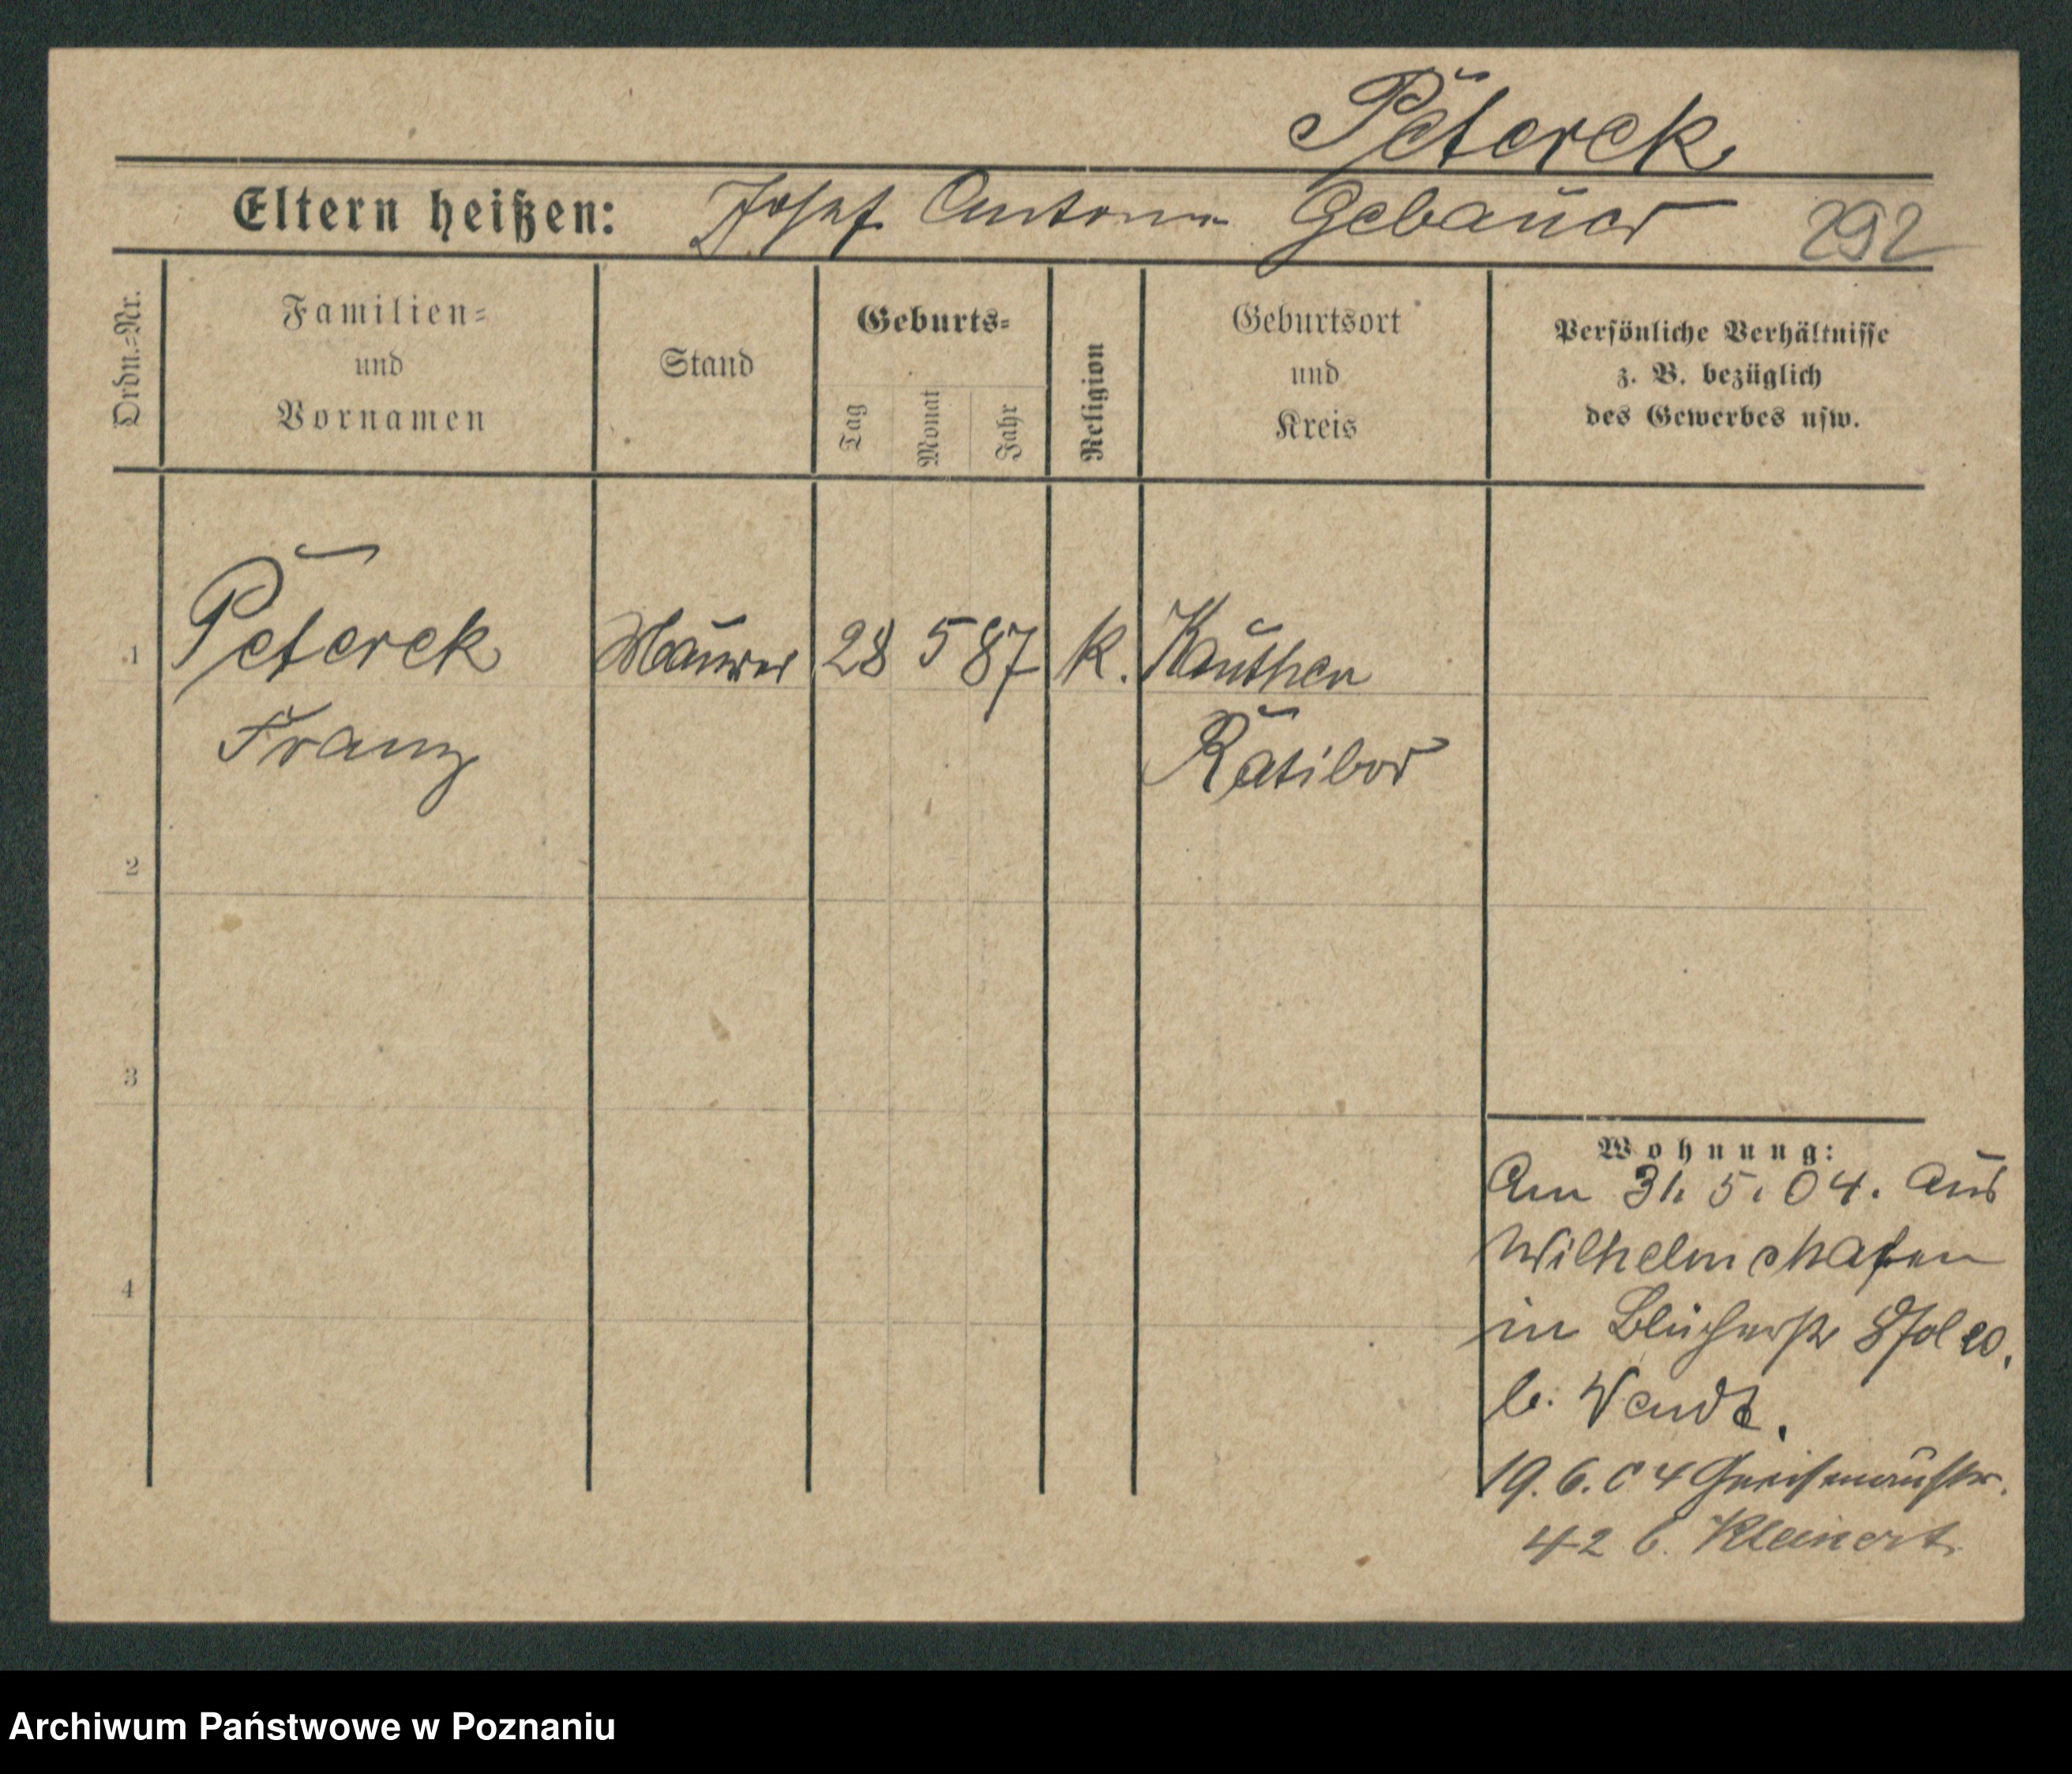 Peterek
Eltern heißen: Josef Antonie Gebauer 292
Ordn.-Nr.
Familien-
und
Vornamen
Stand
Geburts-
Tag
Monat
Jahr
Religion
Geburtsort
und
Kreis
Persönliche Verhältnisse
z. B. bezüglich
des Gewerbes usw.
1 Peterek Maurer 28 5 87 k. Kauthen
Franz Ratibor
2
3
4
Wohnung:
Am 31. 5. 04. aus
Wilhelmshafen
in Blücherstr
b. Wendt.
19. 6. 04 Gneisenaustr.
42 b. Kleinert
Archiwum Państwowe w Poznaniu